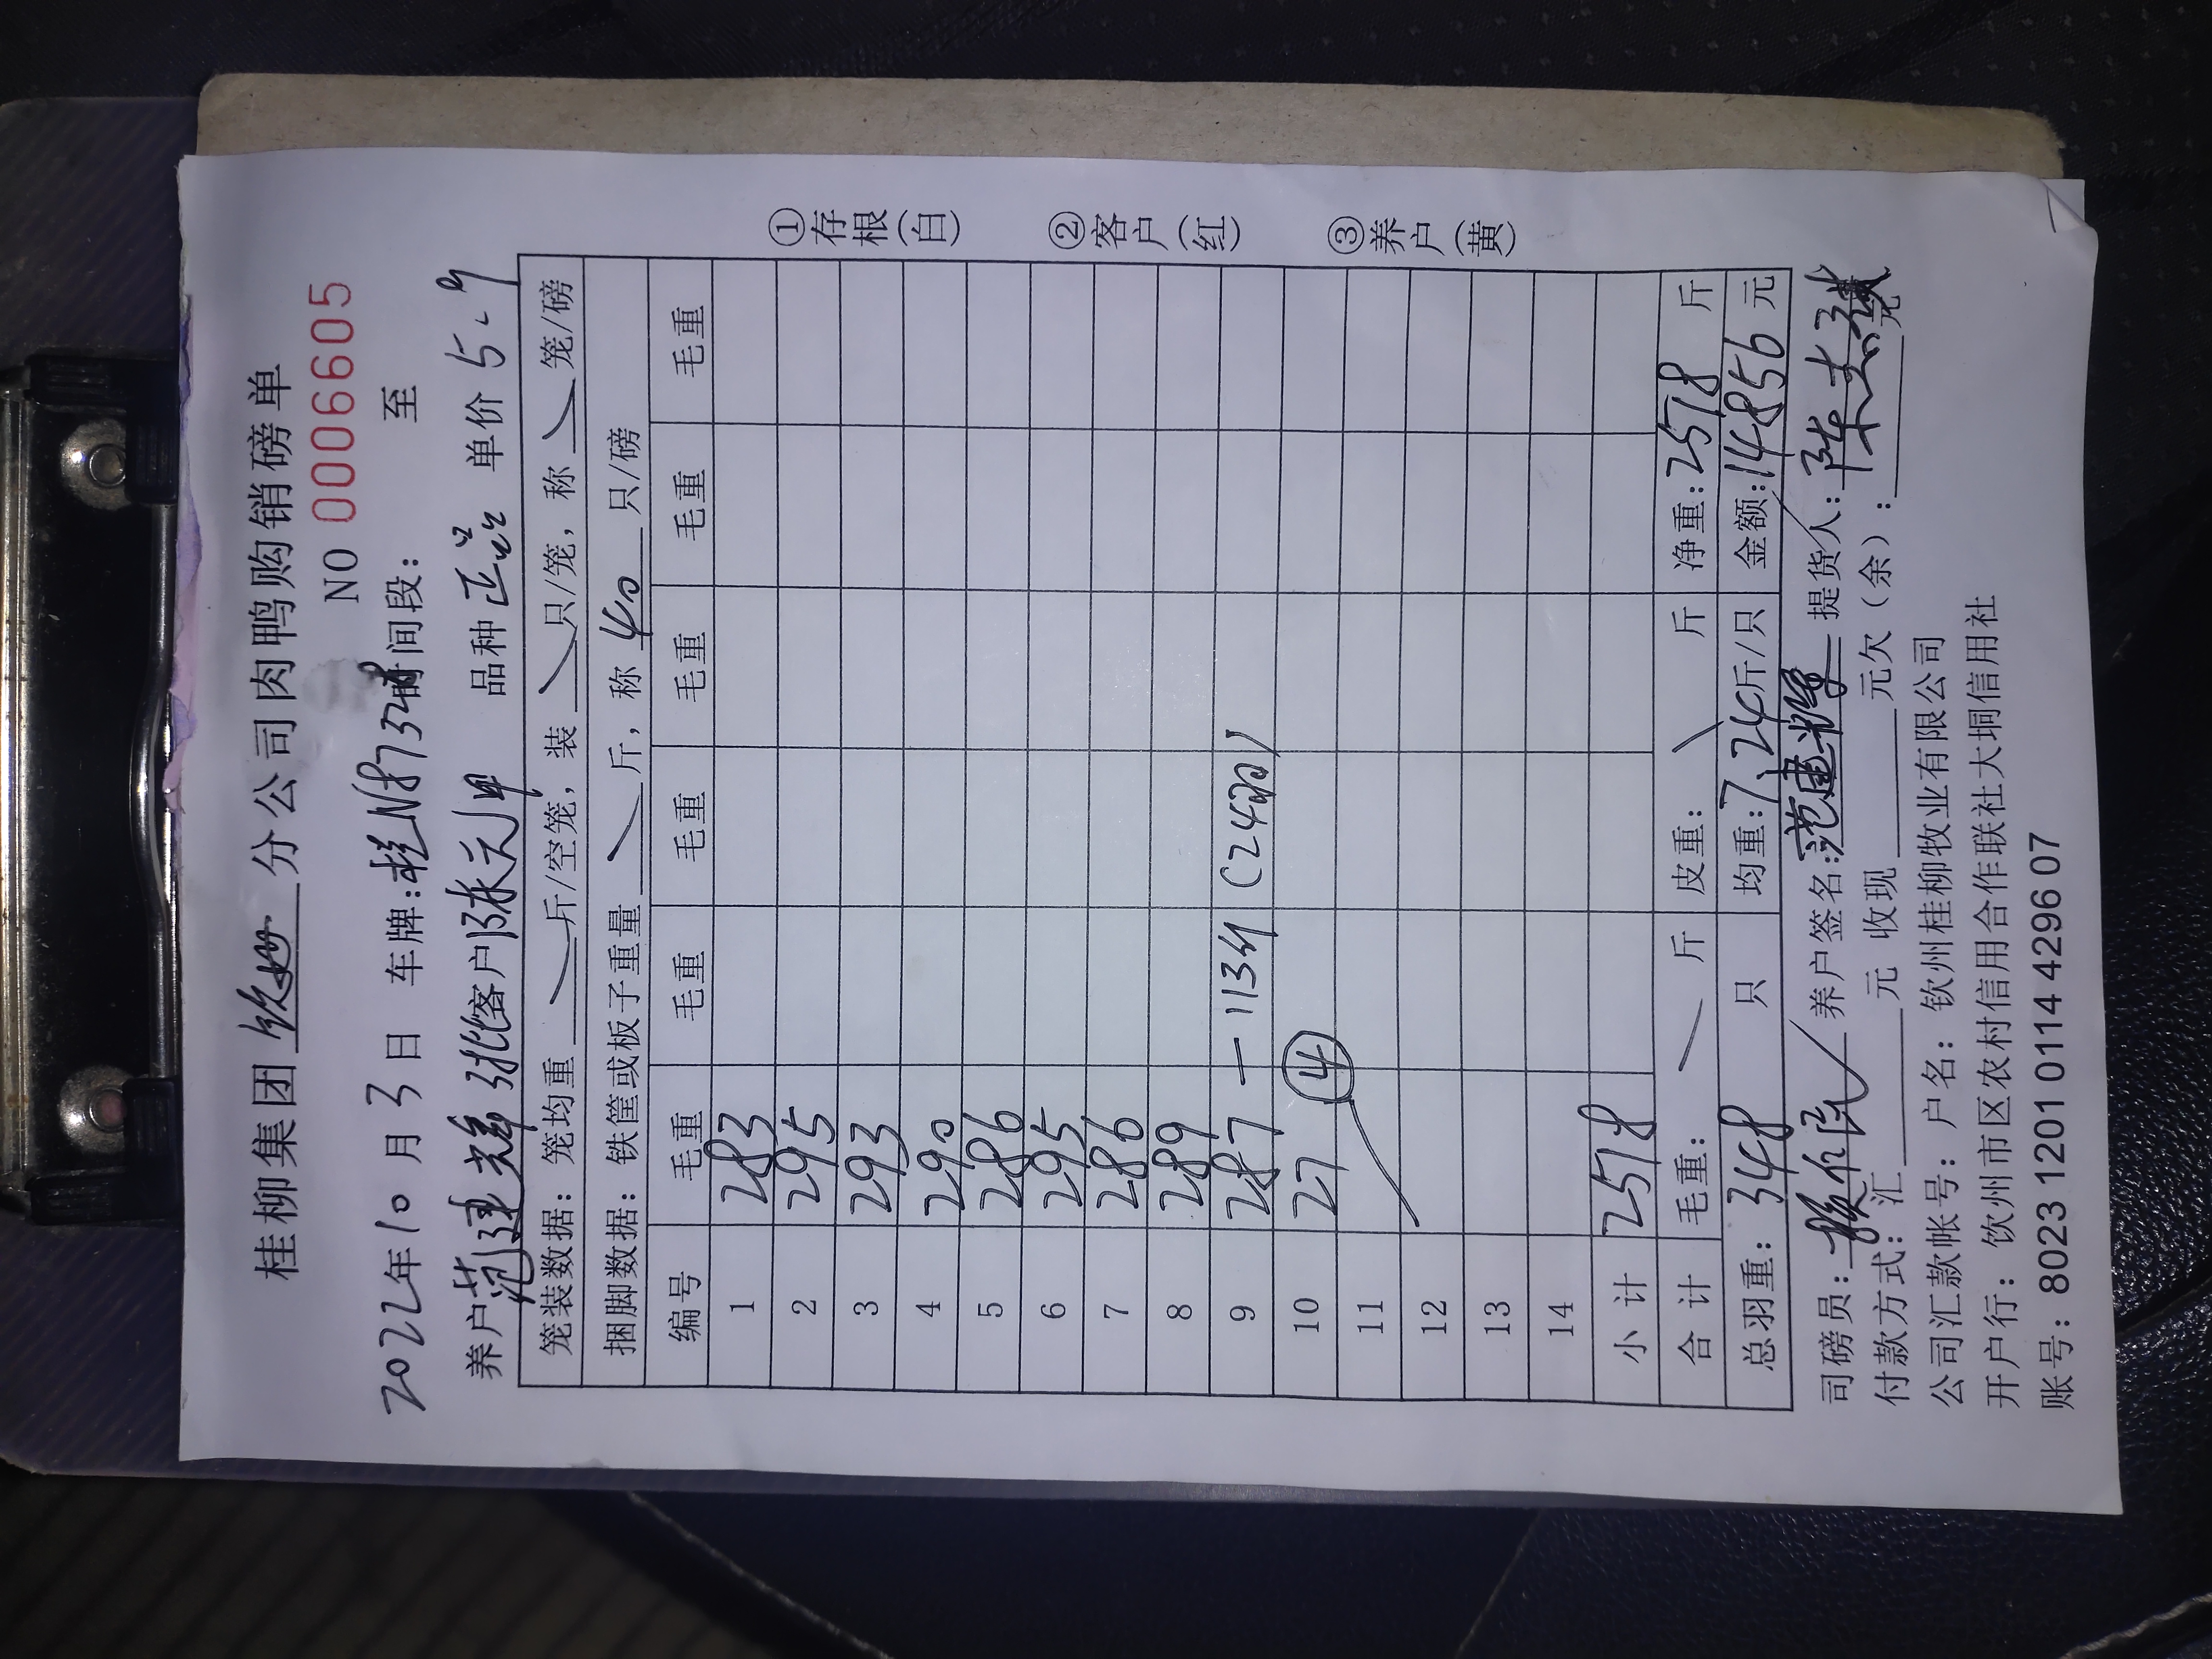 桂柳集团 钦州 分公司肉鸭购销磅单
NO 0006605
2022年10月3日 车牌: 时间段: 至
养户 范建辉 客户 品种 正品 单价
笼装数据: 笼均重 斤/空笼, 装 只/笼, 称 笼/磅
捆脚数据: 铁筐或板子重量 斤, 称 40 只/磅
编号 毛重 毛重 毛重 毛重 毛重 毛重
1 283
2 295
3 293
4 290
5 286
6 295
7 286
8 289
9 287
10 27 ④
11
12
13
14
小计 2518
合计 毛重: 斤 皮重: 斤 净重: 2518 斤
总羽重: 348 只 均重: 7.24斤/只 金额: 14856 元
司磅员: 养户签名: 范建辉 提货人:
付款方式: 汇 元 收现 元欠(余): 元
公司汇款帐号: 户名: 钦州桂柳牧业有限公司
开户行: 钦州市区农村信用合作联社大垌信用社
账号: 8023 1201 0114 4296 07
①存根(白)
②客户(红)
③养户(黄)